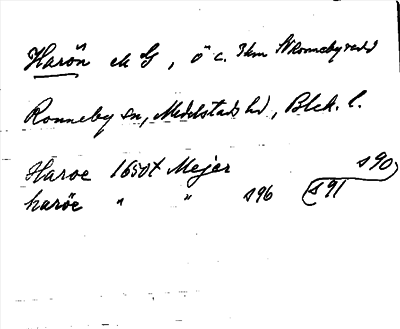 Harön m G, ö c. 3km N Ronnebyredd
Ronneby sn, Medelstads hd, Blek. l.
Haroe 1650t Mejer s 90
haröe " " s 96 s 91